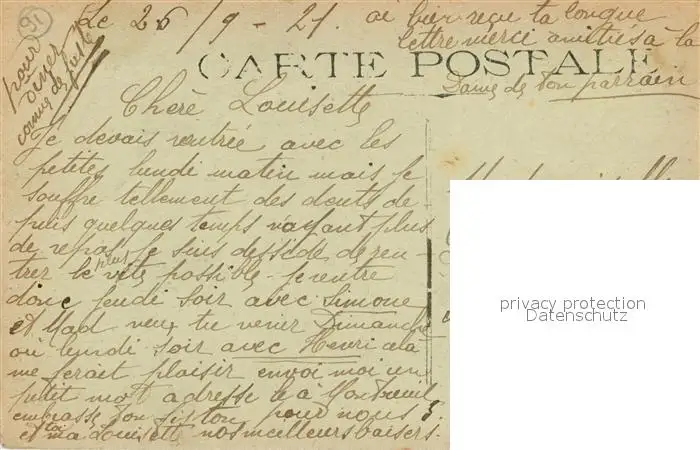 91
Le 26/9-21. ai bien reçu ta longue
lettre merci amitiés à la
CARTE POSTALE
Dame de ton parrain
pour
Chère Louisette
Je devais rentrée avec les
petites lundi matin mais je
souffre tellement des dents de-
puis quelques temps n'ayant plus
de repos. Je suis dessidé de ren-
trer le plus vite possible. je rentre
donc jeudi soir avec Simone
et Mad veux tu venir Dimanche
ou lundi soir avec Henri celà
me ferait plaisir envoi moi un
petit mot adresse le à Montreuil
embrasse ton fiston pour nous 3.
et toi ma Louisette nos meilleurs baisers.
privacy protection
Datenschutz